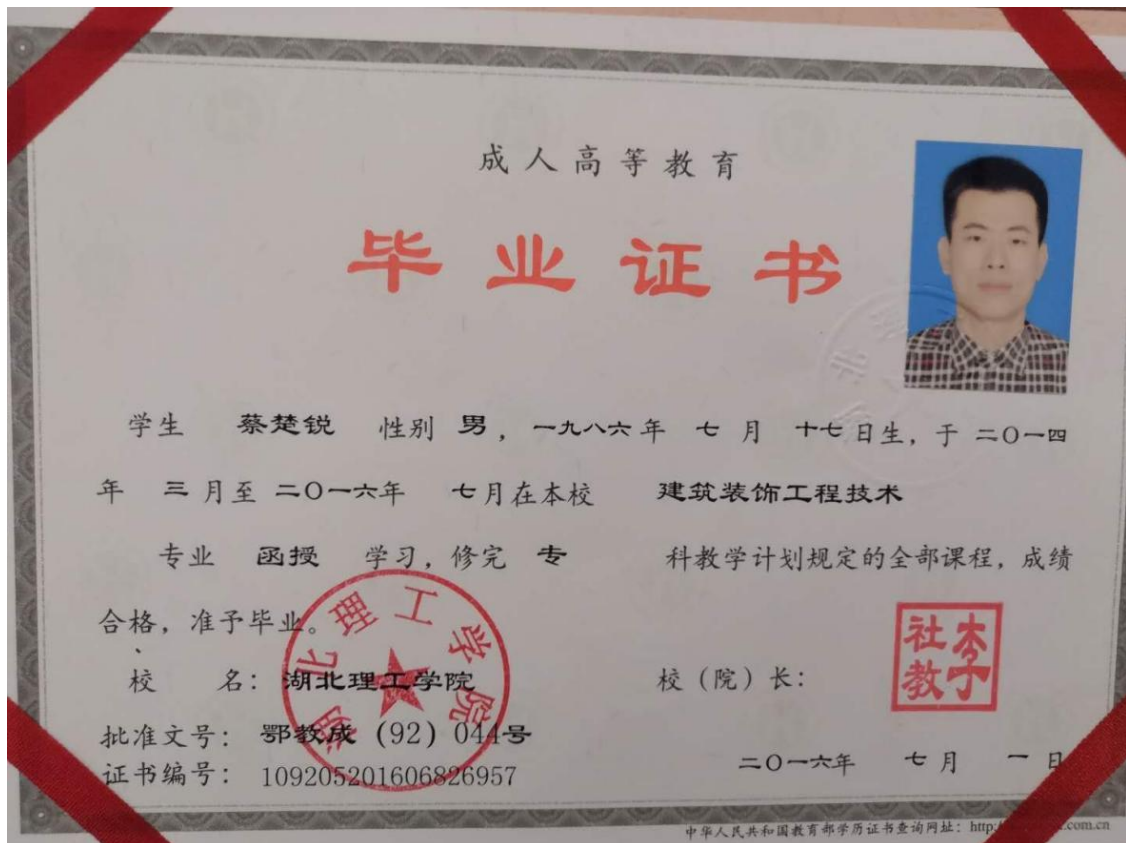 成人高等教育
毕业证书
学生 蔡楚锐 性别 男，一九八六年 七 月 十七日生，于 二〇一四
年 三 月至 二〇一六年 七月在本校 建筑装饰工程技术
专业 函授 学习，修完 专 科教学计划规定的全部课程，成绩
合格，准予毕业。
校 名：湖北理工学院 校（院）长：
李社教
湖北理工学院
批准文号：鄂教成（92）044号
证书编号：109205201606826957
二〇一六年 七 月 一 日
中华人民共和国教育部学历证书查询网址：http: .com.cn